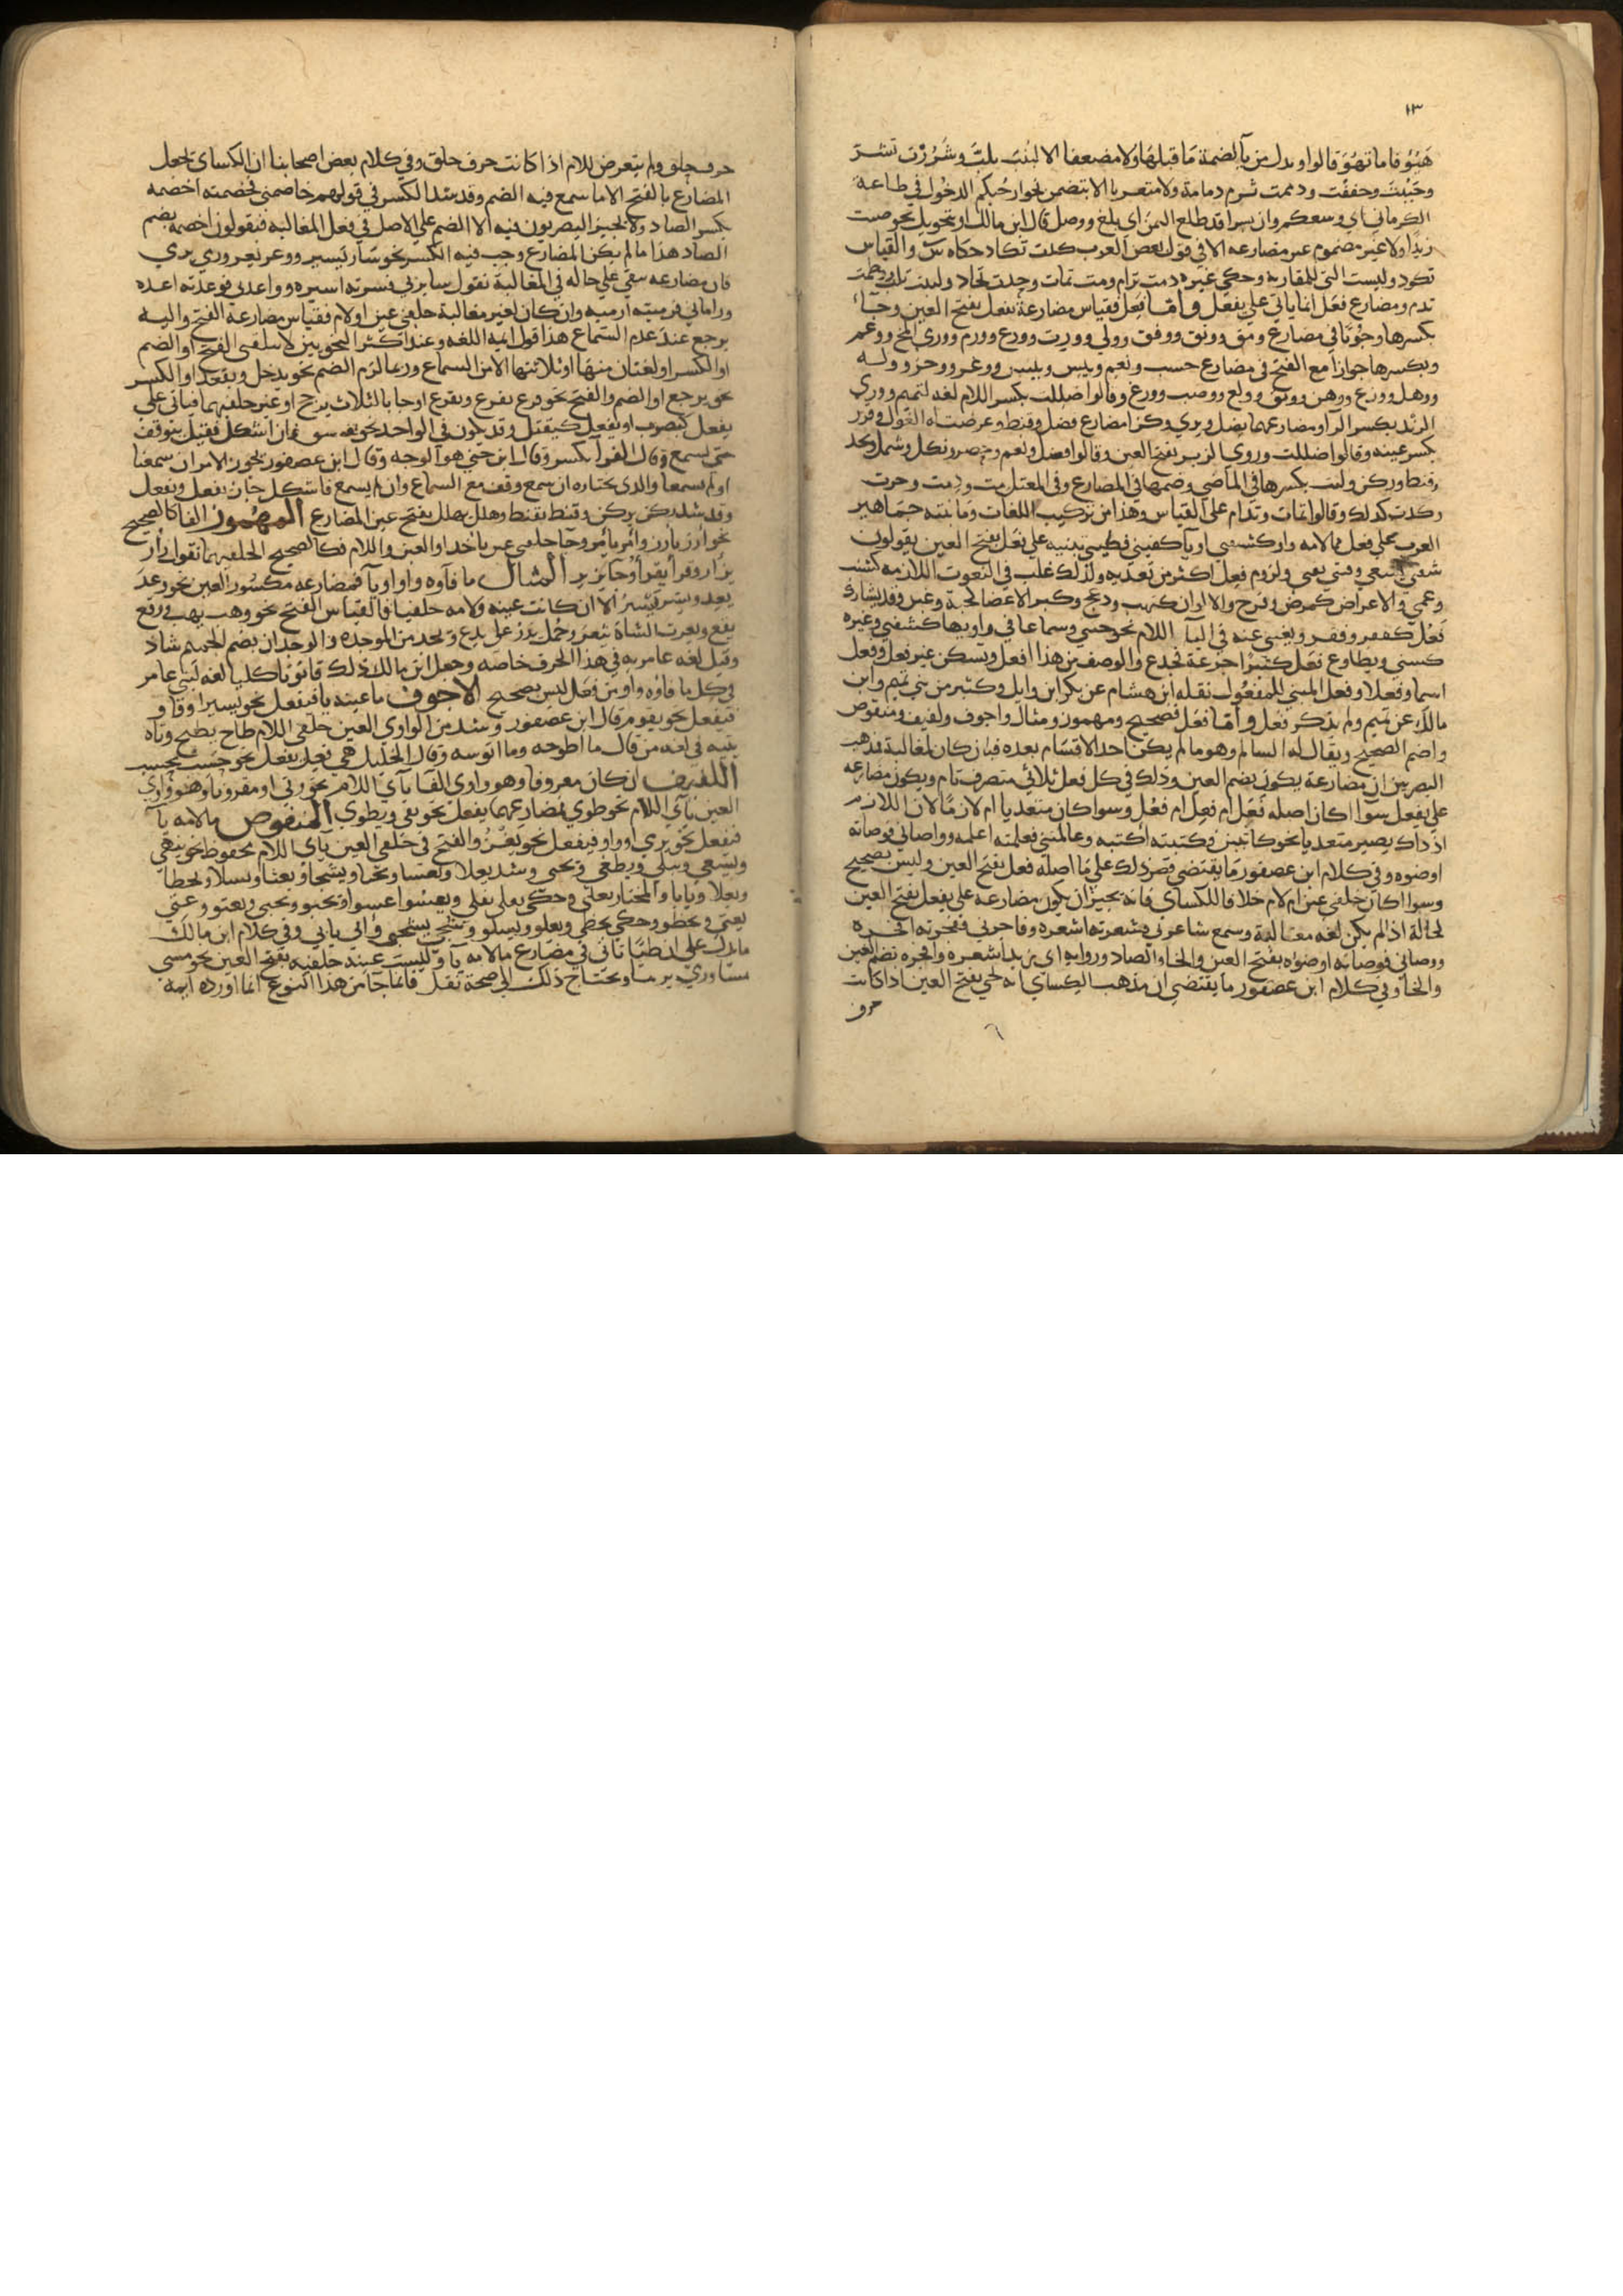 ١٣
هَيُؤ فاما تهُوَ قالوا وبدل من يآ لضمة مَا قبلهَا ولا مضعفا الا لبُبَت تلبّ وشَرُرْت تشرّ
وحَبُبْت وخففْت ودممت تدم دمامة ولا متعديا الا بتضمن نحو ارحُبكم الدخُول في طاعة
الكرماني اي وسعكم وان بسرا قد طلع اليمن اي بلغ ووصل قال ابن مالك او تحويل نحو صنت
زيدًا ولا غير مضموم عين مضارعه الا في قول بعض العرب كدت تكاد حكاه س والقياس
تكود وليست التي للمقاربة وحكي غيره دمت تدام ومت تمات وجدت تجاد ولببت تلب ودممت
تدم ومضارع فعَل انما ياتي علي يفعُل وأما فعِل فقياس مضارعة يفعَل بفتح العين وجآء
بكسرها وجُوبًا في مضارع ومق ووثق ووفق وولي وورث وورع وورم ووري المخ ووعم
وبكسرها جوازا مع الفتح في مضارع حسب ونعم ويئس ويبس ووغر ووحر ووله
ووهل وورع ووهن ووبق وولع ووصب ووزغ وقالوا ضللت بكسر اللام لغة لتميم ووري
الزند بكسر الرآ ومضارعهما يضل ويري وكذا مضارع فضل وقنط وعرضت له الغول وقدر
بكسر عينه وقالوا ضللت وروي الزبير بفتح العين وقالوا فضل ونعم وحضر ونكل وشمل ونجد
وقنط وركن ولبب بكسرها في الماضي وضمها في المضارع وفي المعتل مت ودمت وجدت
وكدت كذلك وقالوا تمات وتدام علي القياس وهذا من تركيب اللغات وما بنته جماهير
العرب علي فعل مما لامه واو كشقي او يآ كفني فطيي تبنيه علي فعَل بفتح العين يقولون
شقي يشقي وفني يفني ولزوم فعِل اكثر من تعديه ولذلك غلب في النعوت اللازمة كشنب
وعمي والاعراض كمرض وفرح والالوان كنهب ودعج وكبر الاعضا كجبه وعين وقد يشارك
فعُل كفقر وفقر ويغني عنه في اليآ اللام نحو حيي وسماعا في واويها كشقي وغيره
كسمي ويطاوع فعَل كثيرًا جدعة فجدع والوصف من هذا افعل وتسكن عين فعل وفعل
اسما وفعلا وفعل المبني للمفعُول نقله ابن هشام عن بكر ابن وايل وكثير من بني تميم وابن
مالك عن تميم ولم يذكر فعل وأما فعَل فصحيح ومهموز ومثال واجوف ولفيف ومنقوص
واصم الصحيح ويقال له السالم وهو ما لم يكن احد الاقسام بعده فان كان لمغالبة فمذهب
البصريين ان مضارعة يكون بضم العين وذلك في كل فعل ثلاثي متصرف تام ويكون مضارعه
علي يفعل سوا اكان اصله فعَل ام فعِل ام فعُل وسوا كان متعديا ام لازمًا لان اللازم
اذ ذاك يصير متعديا نحو كاتبني فكتبته اكتبه وعالمني فعلمته اعلمه وواضاني فوضأته
اوضوه وفي كلام ابن عصفور مَا يقتضي قصر ذلك علي مَا اصله فعل بفتح العين وليس بصحيح
وسوا اكان حلقي عين ام لام خلافا للكساي فانه يجيز ان يكون مضارعه علي يفعل بفتح العين
لحالة اذا لم يكن لغة مغالبة وسمع شاعرني فشعرته اشعره وفاخرني ففخرته افخره
ووضاني فوضأته اوضوه بفتح العين والخا والضاد ورواية ابي زيد اشعره وافخره بضم العين
والخا وفي كلام ابن عصفور مَا يقتضي ان مذهب الكساي انه يجي بفتح العين اذا كانت
حرف
حرف حلق ولم يتعرض للام اذا كانت حرف حلق وفي كلام بعض اصحابنا ان الكساي يجعل
المضارع بالفتح الا ما سمع فيه الضم وقد شذ الكسر في قولهم خاصمني فخصمته اخصمه
بكسر الصاد ولا يجيز البصريون فيه الا الضم علي الاصل في فعل المغالبه فيقولون اخصمه بضم
الصاد هذا ما لم يكن المضارع وجب فيه الكسر نحو سار يسير ووعد يعد وري يري
فان مضارعه يبقي علي حاله في المغالبة تقول سايرني فسرته اسيره وواعدني فوعدته اعده
وراماني فرميته ارميه وان كان لغير مغالبة حلقي عين او لام فقياس مضارعة الفتح واليه
يرجع عند عدم السماع هذا قول ايمة اللغه وعند اكثر النحويين لا يتلقي الفتح او الضم
او الكسر او لغتان منها او ثلاثتها الا من السماع وربما لزم الضم نحو يدخل ويقعد او الكسر
نحو يرجع او الضم والفتح نحو فرع يفرع ويفرع او جا بالثلاث يرجح او غير حلقيهما فياتي علي
يفعل كيضرب او يفعل كيقتل وقد يكون في الواحد نحو يفسق فان اشكل فقيل يتوقف
حتي يسمع وقال الفرآ يكسر وقال ابن جني هو الوجه وقال ابن عصفور يجوز الامران سمعا
او لم يسمعا والذي نختاره ان سمع وقف مع السماع وان لم يسمع فاشكل جاز يفعل ويفعل
وقد شذ ركن يركن وقنط يقنط وهلك يهلك بفتح عين المضارع المهموز الفا كالصحيح
نحو ارز يارز وامر يامر وجآ حلقي عين ياخذ او العين واللام فكالصحيح الحلقيهما تقول زأر
يزأر وقرأ يقرأ وجآ يزير المثال ما فآوه واو او يآ فمضارعه مكسُور العين نحو وعد
يعد ويسر ييسر الا ان كانت عينه ولامه حلقيا فالقياس الفتح نحو وهب يهب ووقع
يقع ويعرت الشاة تيعر وحمل يذر علي يدع ويجد من الموجده والوجدان بضم الجيم شاذ
وقيل لغه عامريه في هذا الحرف خاصه وجعل ابن مالك ذلك قانونًا كليا لغه لبني عامر
في كل ما فاوه واو من فعَل ليس بصحيح الاجوف ما عينه يا فيفعل نحو يسير او واو
فيفعل نحو يقوم قال ابن عصفور وشذ من الواوي العين حلقي اللام طاح يطيح وتاه
يتيه في لغه من قال ما اطوحه وما اتوهه وقال الخليل هي فعِل يفعِل نحو حسب يحسب
اللفيف ان كان مفروقا وهو واوي الفآ يآي اللام نحو وقي او مقرونا وهو واوي
العين يآي اللام نحو طوي فمضارعهما يفعل نحو يقي ويطوي المنقوص ما لامه يآ
فيفعل نحو يرمي او واو فيفعل نحو يغزُو والفتح في حلقي العين يآي اللام محفوظ نحو ينهي
ويسعي ... ويطغي ويمحي وشذ ...
... ابن مالك
ما يدل علي ان طيا تاتي في مضارع ما لامه يآ وليست عينه حلقيه بفتح العين نحو مسي
... ويحتاج ذلك الي صحة نقل فانما جا من هذا النوع انما اورده ايمة